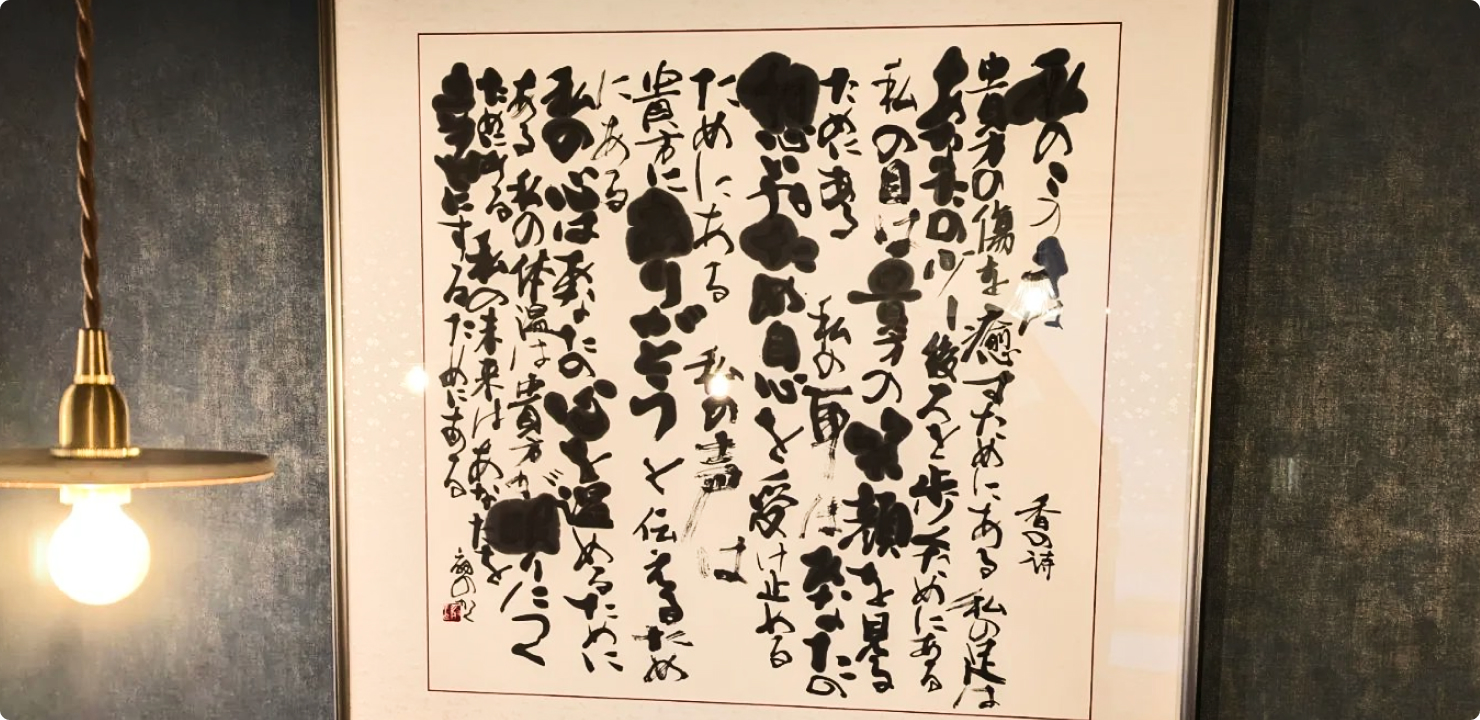 私の
香の詩
貴方の傷を癒すためにある 私の足は
あなたの少し後ろを歩くためにある
私の目は貴方の笑顔を見る
ためにある 私の耳はあなたの
想いやため息を受け止める
ためにある 私の声は
貴方にありがとうと伝えるため
にある
私の心はあなたの心を温めるために
ある 私の体温は貴方が眠りにつく
ためにある 私の未来はあなたを
幸せにするためにある